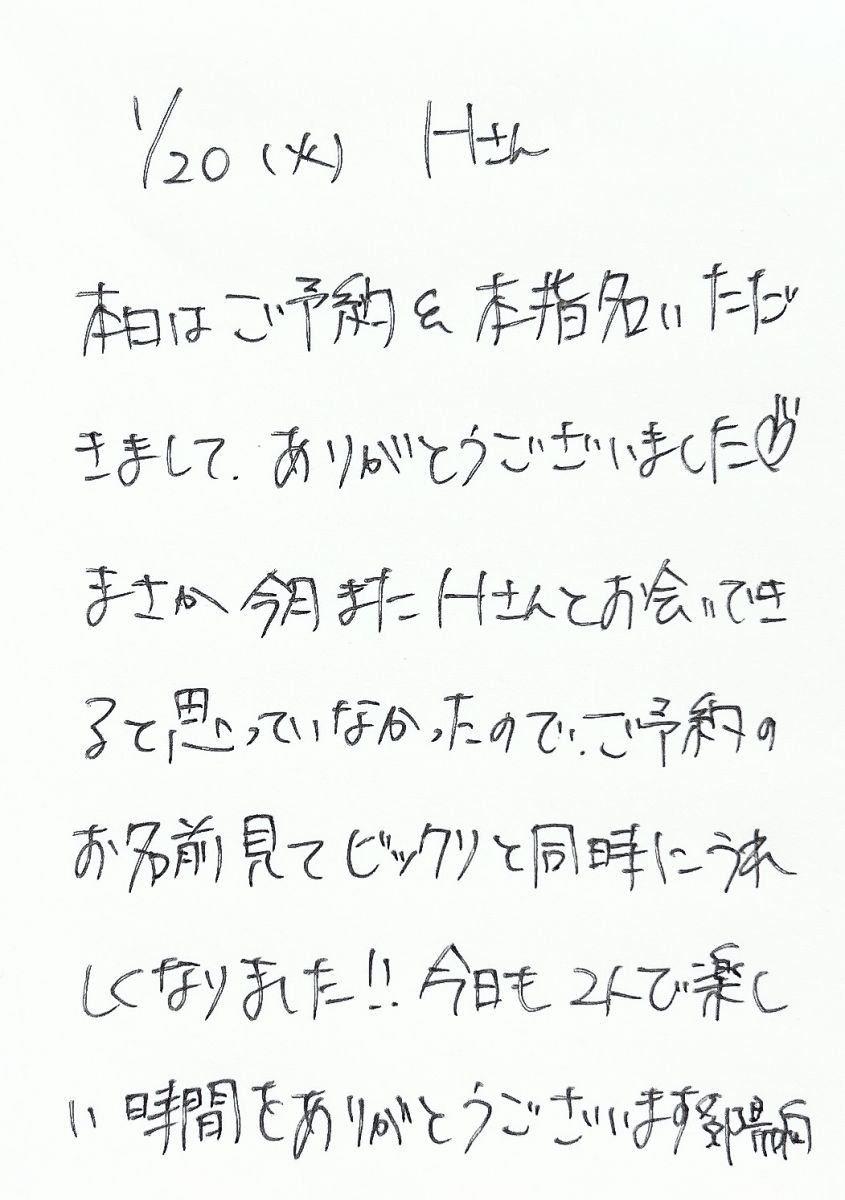 1/20(火) Hさん
本日はご予約&本指名いただ
きまして、ありがとうございました
まさか今月またHさんとお会いでき
ると思っていなかったので、ご予約の
お名前見てビックリと同時にうれ
しくなりました!!今日も2人で楽し
い時間をありがとうございます